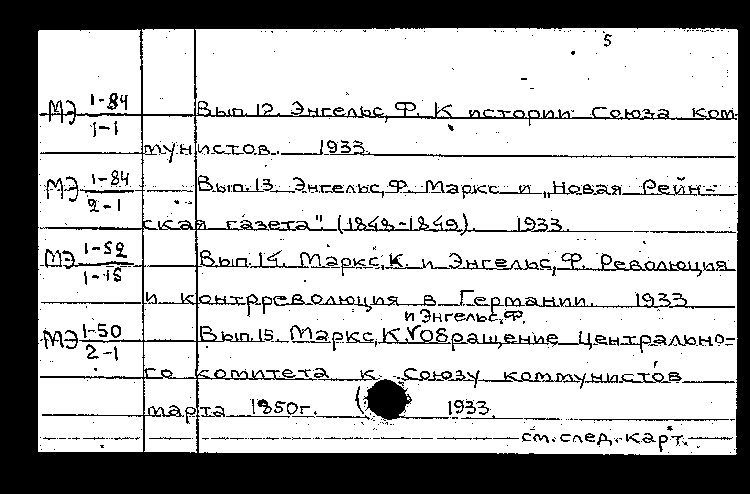 5
МЭ 1-84 Вып. 12. Энгельс, Ф. К истории Союза ком-
1-1
мунистов. 1933.
МЭ 1-84 Вып. 13. Энгельс, Ф. Маркс и „Новая Рейн-
2-1
ская газета". (1848-1849). 1933.
МЭ 1-52 Вып. 14. Маркс, К. и Энгельс, Ф. Революция
1-15
и контрреволюция в Германии. 1933
и Энгельс, Ф.
МЭ 1-50 Вып. 15. Маркс, К. V Обращение Центрально-
2-1
го комитета к Союзу коммунистов
марта 1850г. ( 1933.
см. след. карт.